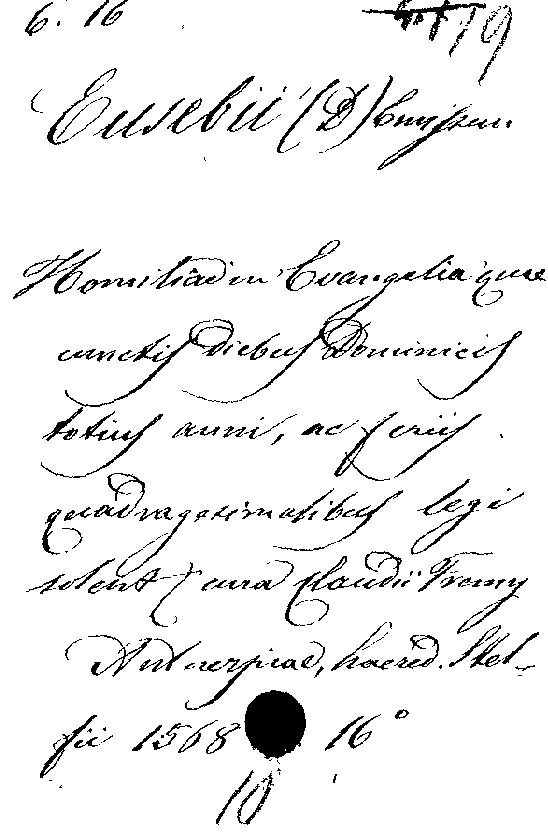 6. 16 179
Eusebii (D)
Homiliae in Evangelia quae
cunctis diebus Dominicis
totius anni, ac feriis
quadragesimalibus legi
solent cura Claudii Fremy
Antverpiae, haered. Stel-
sii 1568 16°
10